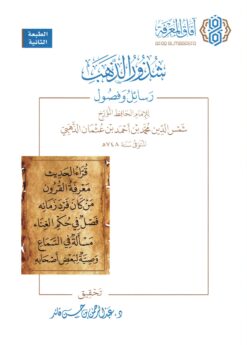 الطبعة
الثانية
آفاق المعرفة
شذور الذهب
رسائل وفصول
للإمام الحافظ المؤرخ
شمس الدين محمد بن أحمد بن عثمان الذهبي
المتوفى سنة ٧٤٨هـ
قراءة الحديث
معرفة القرون
من كان فرد زمانه
فصل في حكم الغناء
مسألة في السماع
وصية لبعض أصحابه
تحقيق
د. عبدالرحمن بن حسن قائد